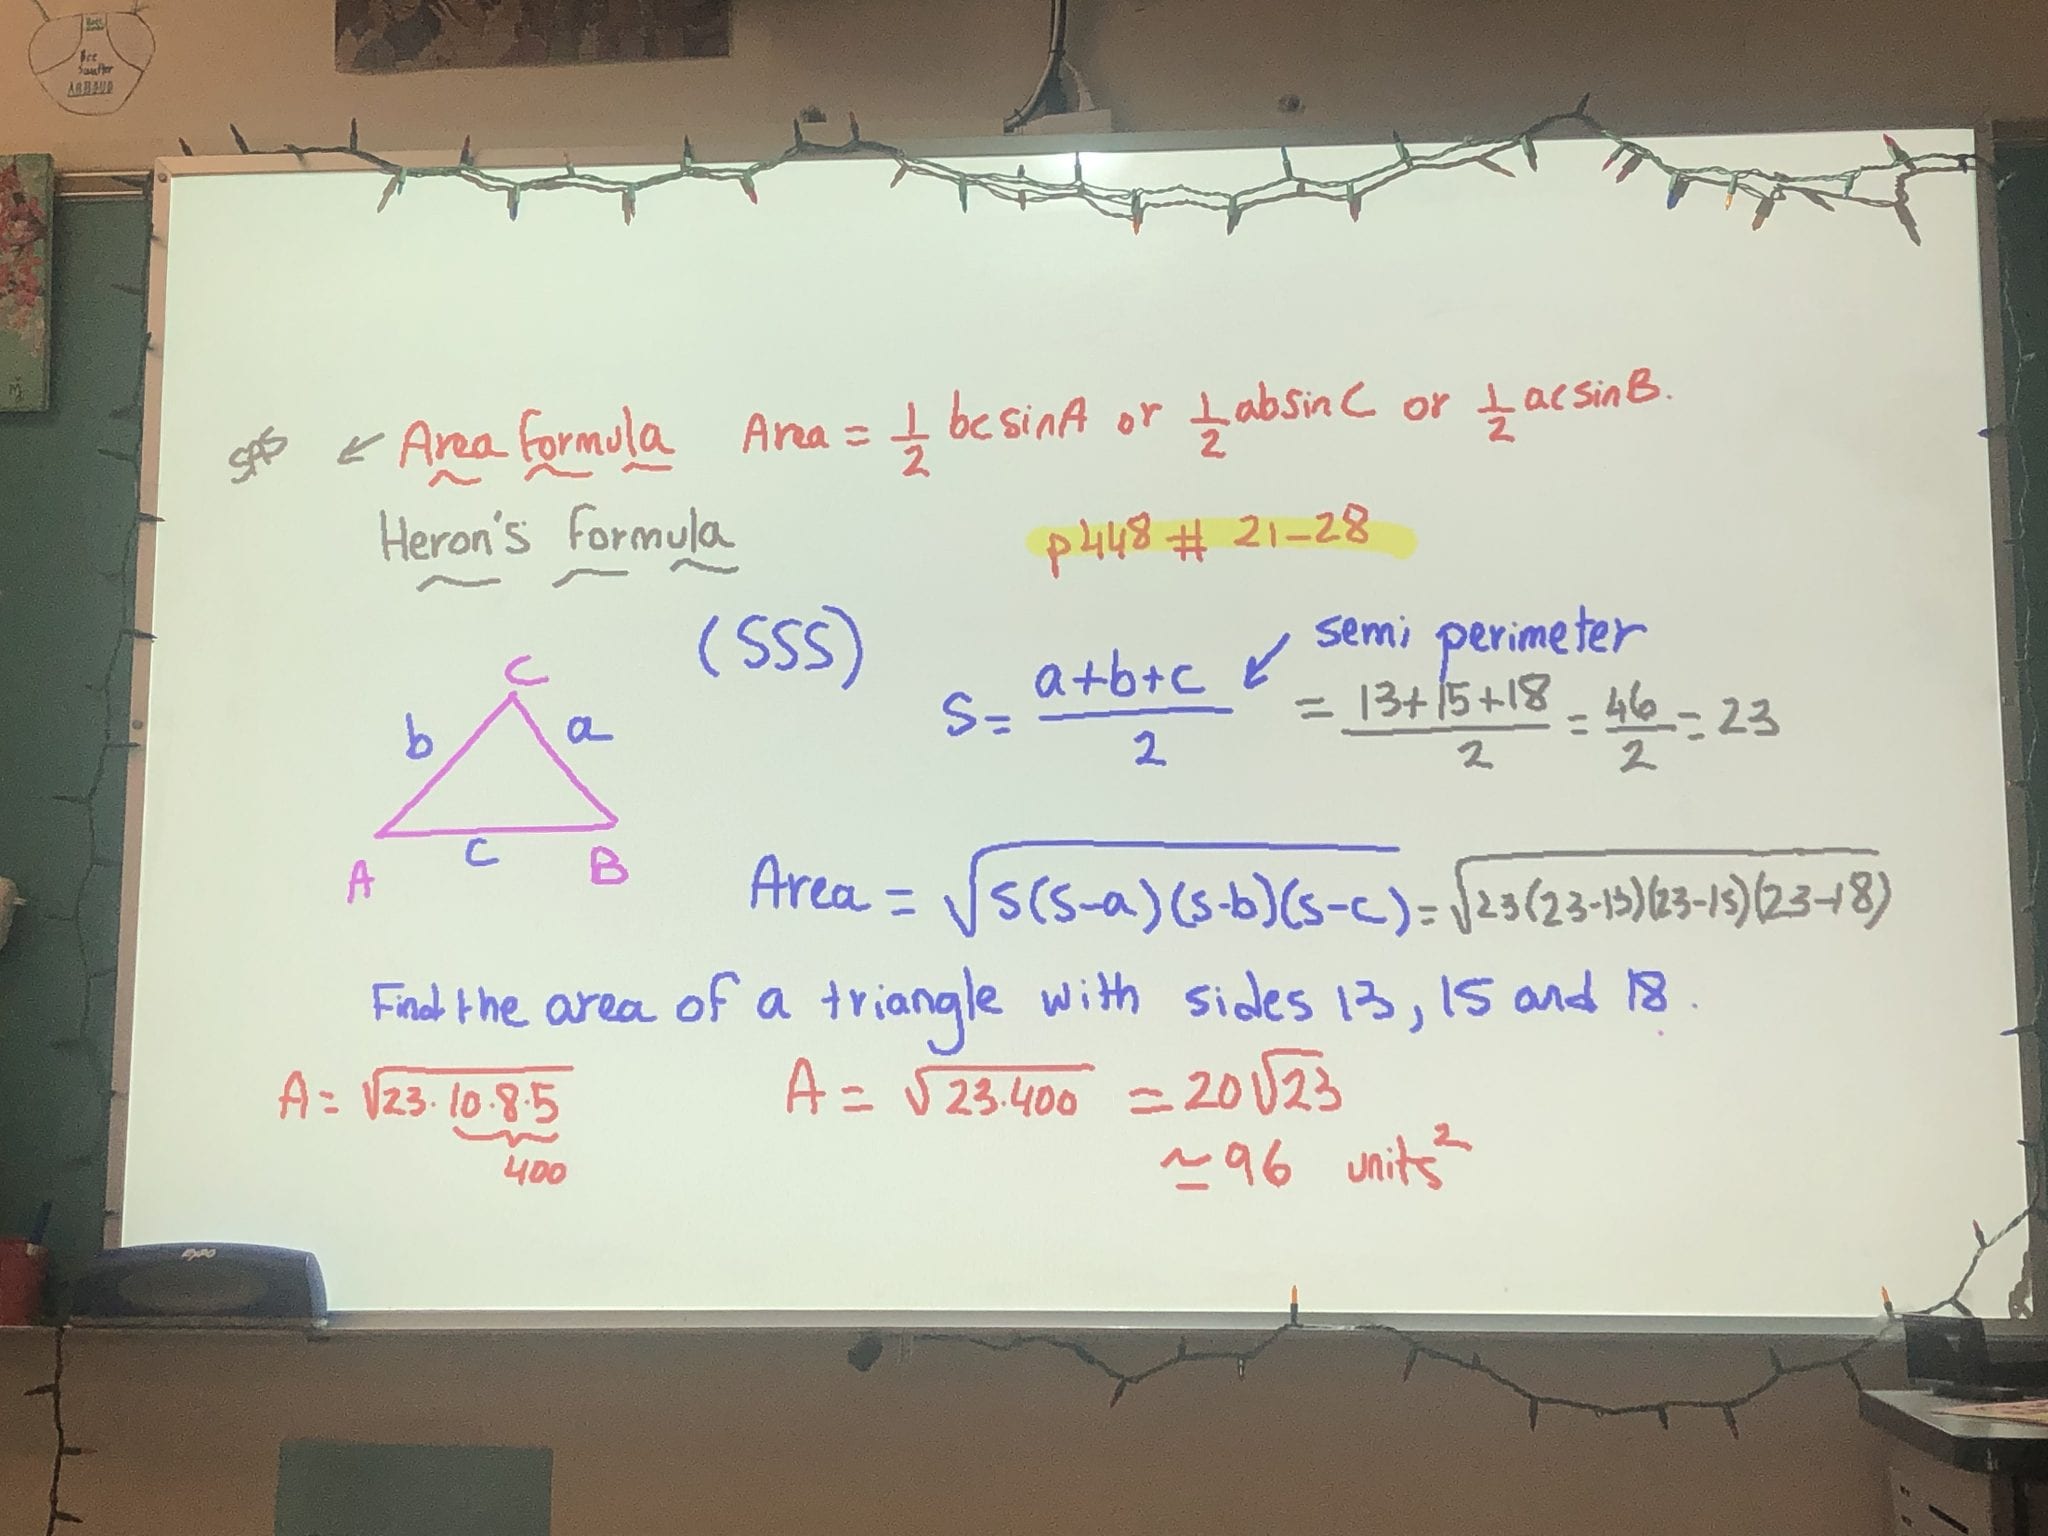 SAS ← Area Formula Area = 1/2 bc sinA or 1/2 ab sin C or 1/2 ac sin B.
Heron's Formula
p448 # 21-28
(SSS)
semi perimeter
S = (a+b+c)/2 = (13+15+18)/2 = 46/2 = 23
C
b a
A c B
Area = √s(s-a)(s-b)(s-c) = √23(23-13)(23-15)(23-18)
Find the area of a triangle with sides 13, 15 and 18.
A = √23·10·8·5 A = √23·400 = 20√23
400
≃ 96 units²
EXPO